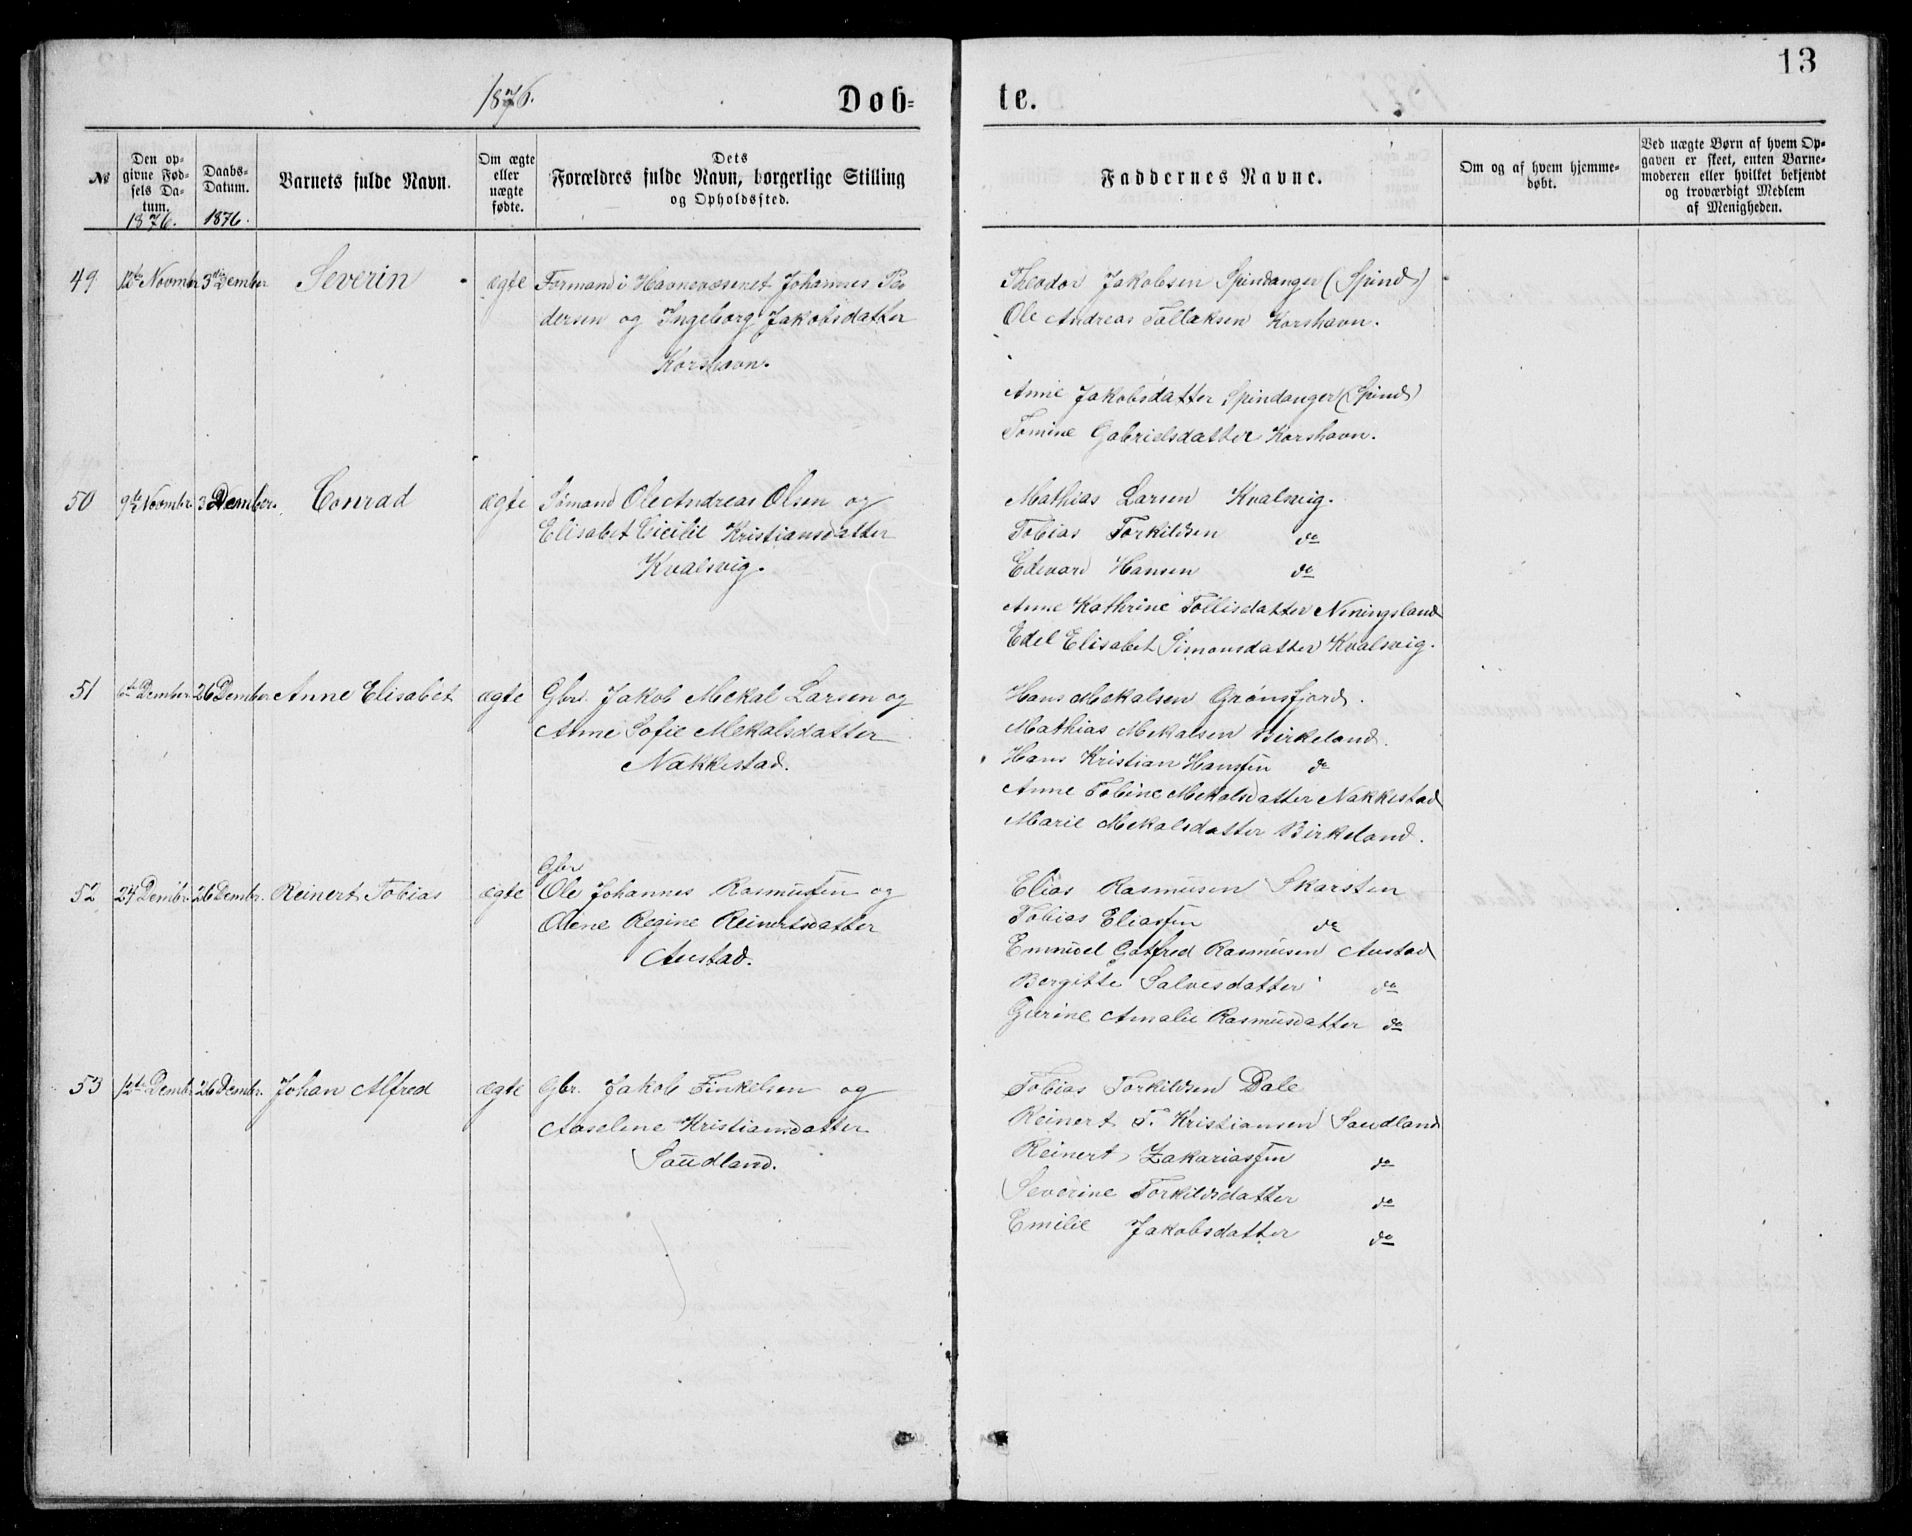 13
1876.
Døb=
te.
No
Den op-
givne Fød-
sels Da-
tum.
1876.
Daabs-
Datum.
1876.
Barnets fulde Navn.
Om ægte
eller
uægte
fødte.
Dets
Forældres fulde Navn, borgerlige Stilling
og Opholdssted.
Faddernes Navne.
Om og af hvem hjemme-
døbt.
Ved uægte Børn af hvem Op-
gaven er skeet, enten Barne-
moderen eller hvilket bekjendt
og troværdigt Medlem
af Menigheden.
49 12te Novmbr 3die Dember Severin ægte Formand i Havnevæsenet Johannes Pe-
dersen og Ingeborg Jakobsdatter
Korshavn.
Theodor Jakobsen Spindanger (Spind)
Ole Andreas Tollaksen Korshavn.
Anne Jakobsdatter Spindanger (Spind)
Tomine Gabrielsdatter Korshavn.
50 9de Novmbr. 3 Dember. Conrad ægte Sømand Ole Andreas Olsen og
Elisabet Cicilie Kristiansdatter
Kvalsvig.
Mathias Larsen Kvalsvig.
Tobias Torkildsen do
Edevard Hansen do
Anne Kathrine Tollisdatter Neningsland
Edel Elisabet Simonsdatter Kvalsvig.
51 6te Dember 26 Dember Anne Elisabet ægte Gbr. Jakob Mekal Larsen og
Anne Sofie Mekalsdatter
Nakkestad.
Hans Mekalsen Grønsfjord.
Mathias Mekalsen Birkeland.
Hans Kristian Hanssen do
Anne Tobine Mekalsdatter Nakkestad
Marie Mekalsdatter Birkeland.
52 24 Dembr. 26 Dembr. Reinert Tobias ægte Gbr
Ole Johannes Rasmussen og
Olene Regine Reinertsdatter
Austad.
Elias Rasmusen Skarsten
Tobias Eliassen do
Emmuel Gotfred Rasmusen Austad
Bergitte Salvesdatter do
Gurine Amalie Rasmusdatter do
53 12te Dembr 26 Dembr. Johan Alfred ægte Gbr. Jakob Finkelsen og
Aaselene Kristiansdatter
Saudland.
Tobias Torkildsen Dale
Reinert T. Kristiansen Saudland
Reinert Zakariassen do
Severine Torkildsdatter do
Emilie Jakobsdatter do